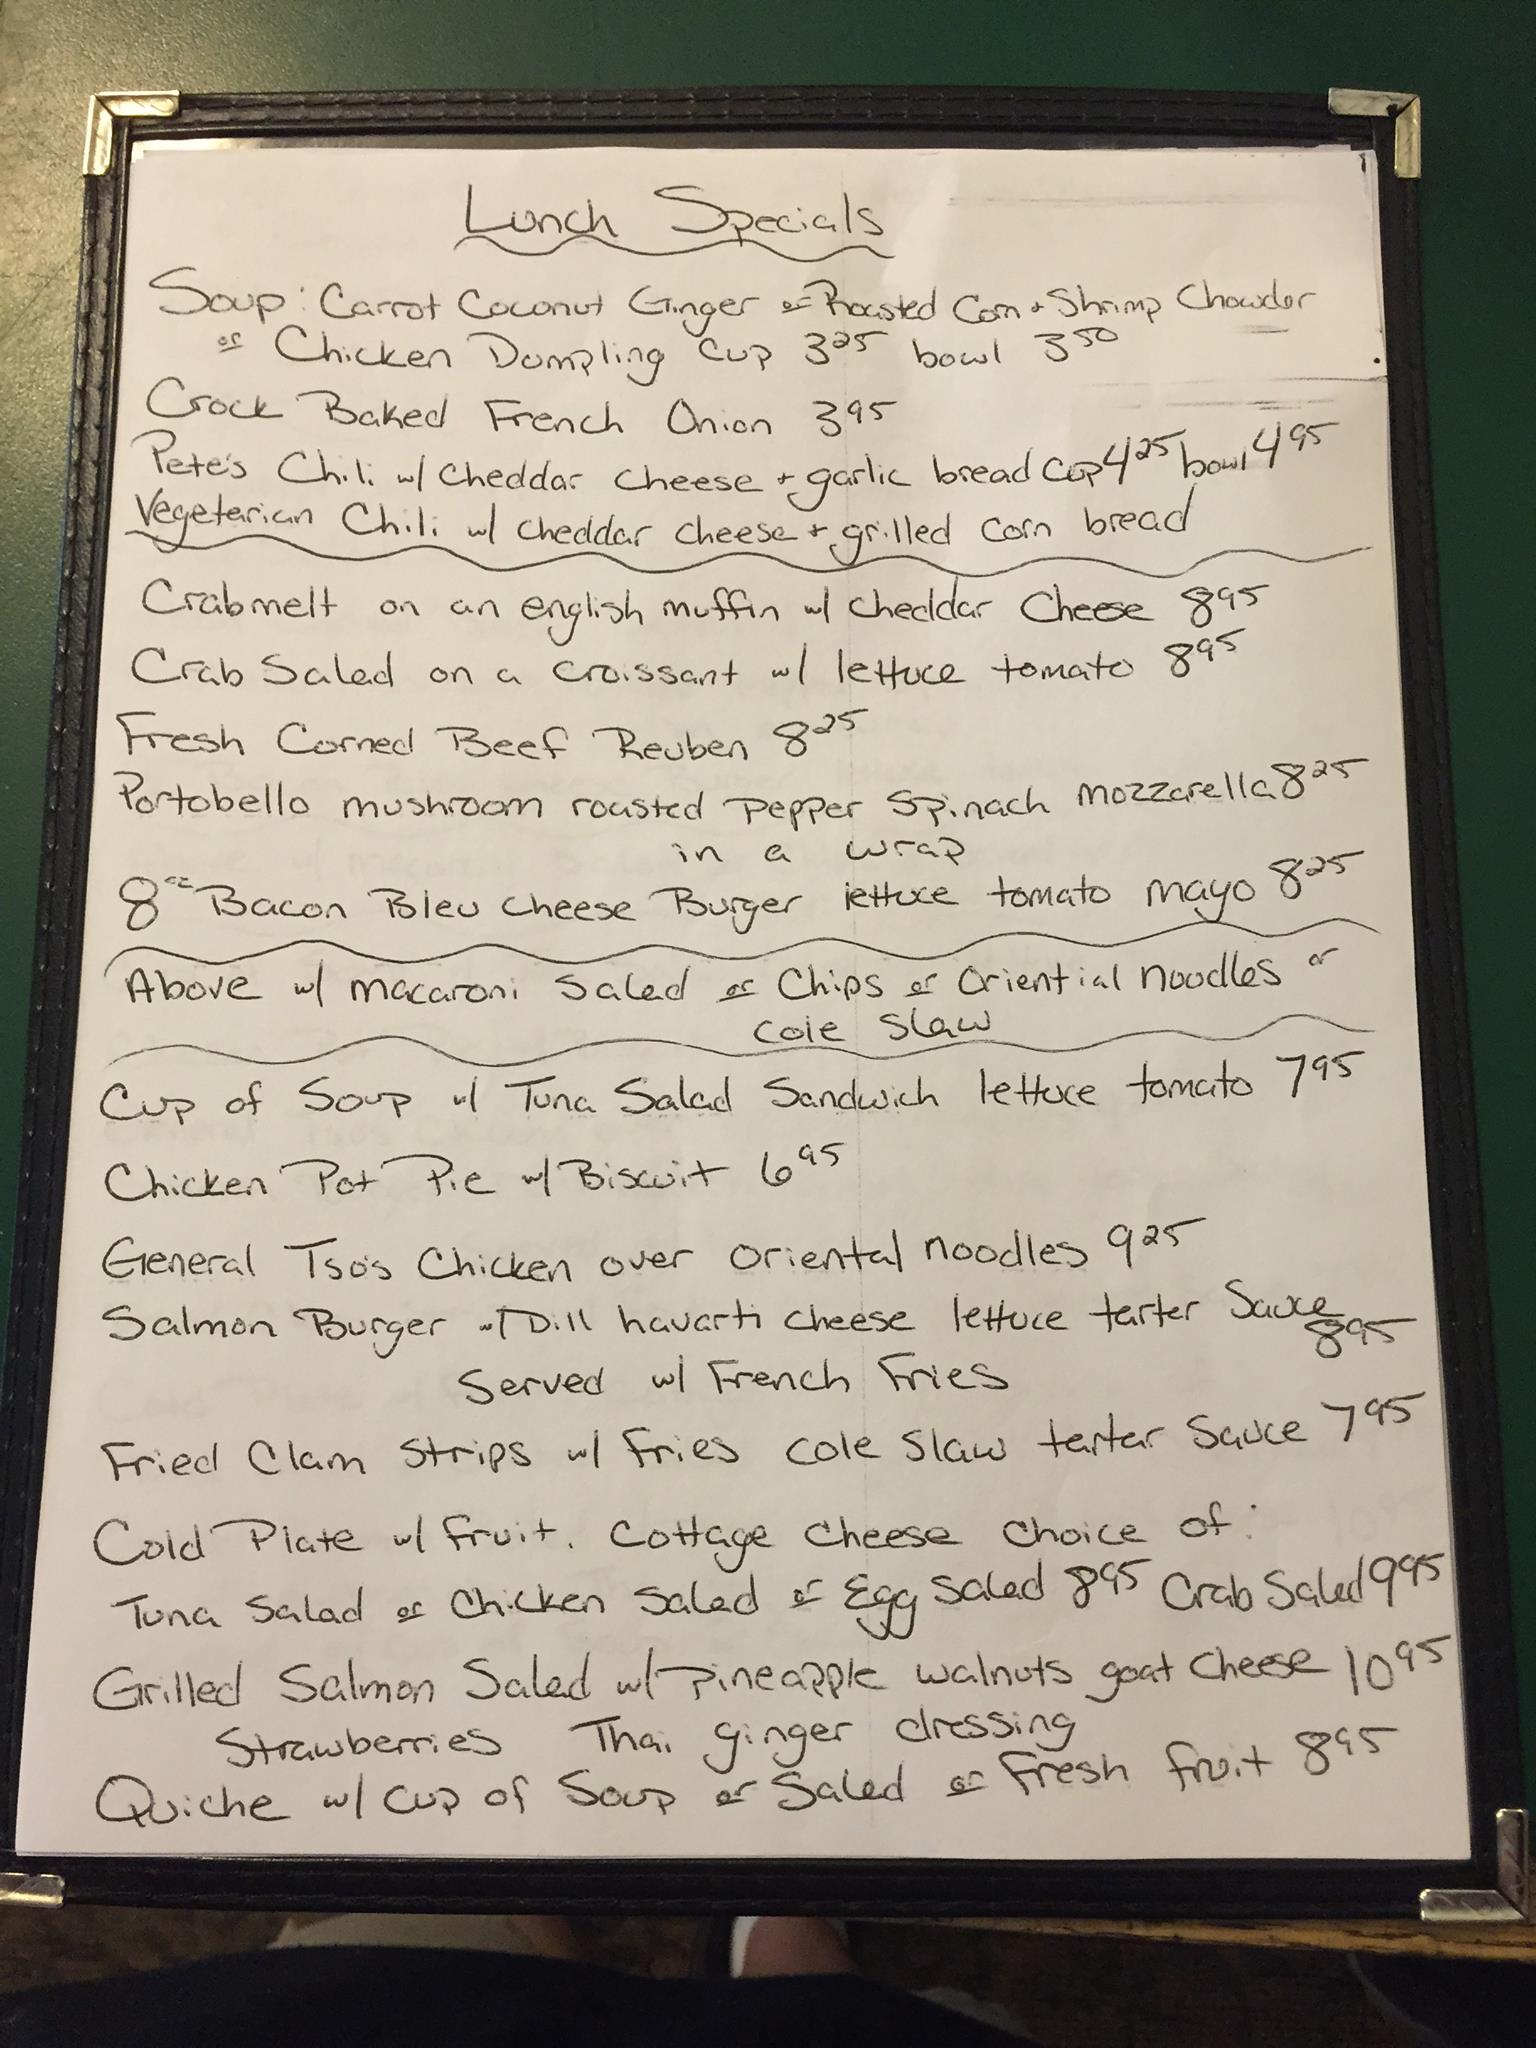 Lunch Specials
Soup: Carrot Coconut Ginger or Roasted Corn + Shrimp Chowder
or Chicken Dumpling cup 3 25 bowl 3 50
Crock Baked French Onion 3 95
Pete's Chili w/ cheddar cheese + garlic bread cup 4 25 bowl 4 95
Vegetarian Chili w/ cheddar cheese + grilled corn bread
Crabmelt on an english muffin w/ cheddar Cheese 8 95
Crab Salad on a croissant w/ lettuce tomato 8 95
Fresh Corned Beef Reuben 8 25
Portobello mushroom roasted pepper spinach mozzarella 8 25
in a wrap
8 oz Bacon Bleu cheese Burger lettuce tomato mayo 8 25
Above w/ macaroni salad or Chips or Oriential noodles or
cole slaw
Cup of Soup w/ Tuna Salad Sandwich lettuce tomato 7 95
Chicken Pot Pie w/ Biscuit 6 95
General Tso's Chicken over oriental noodles 9 25
Salmon Burger w/ Dill havarti cheese lettuce tarter Sauce
8 95
Served w/ French Fries
Fried Clam strips w/ fries cole slaw tarter sauce 7 95
Cold Plate w/ fruit. cottage cheese choice of:
Tuna salad or chicken salad or Egg salad 8 95 Crab Salad 9 95
Grilled Salmon Salad w/ pineapple walnuts goat cheese 10 95
Strawberries Thai ginger dressing
Quiche w/ cup of Soup or Salad or Fresh fruit 8 95